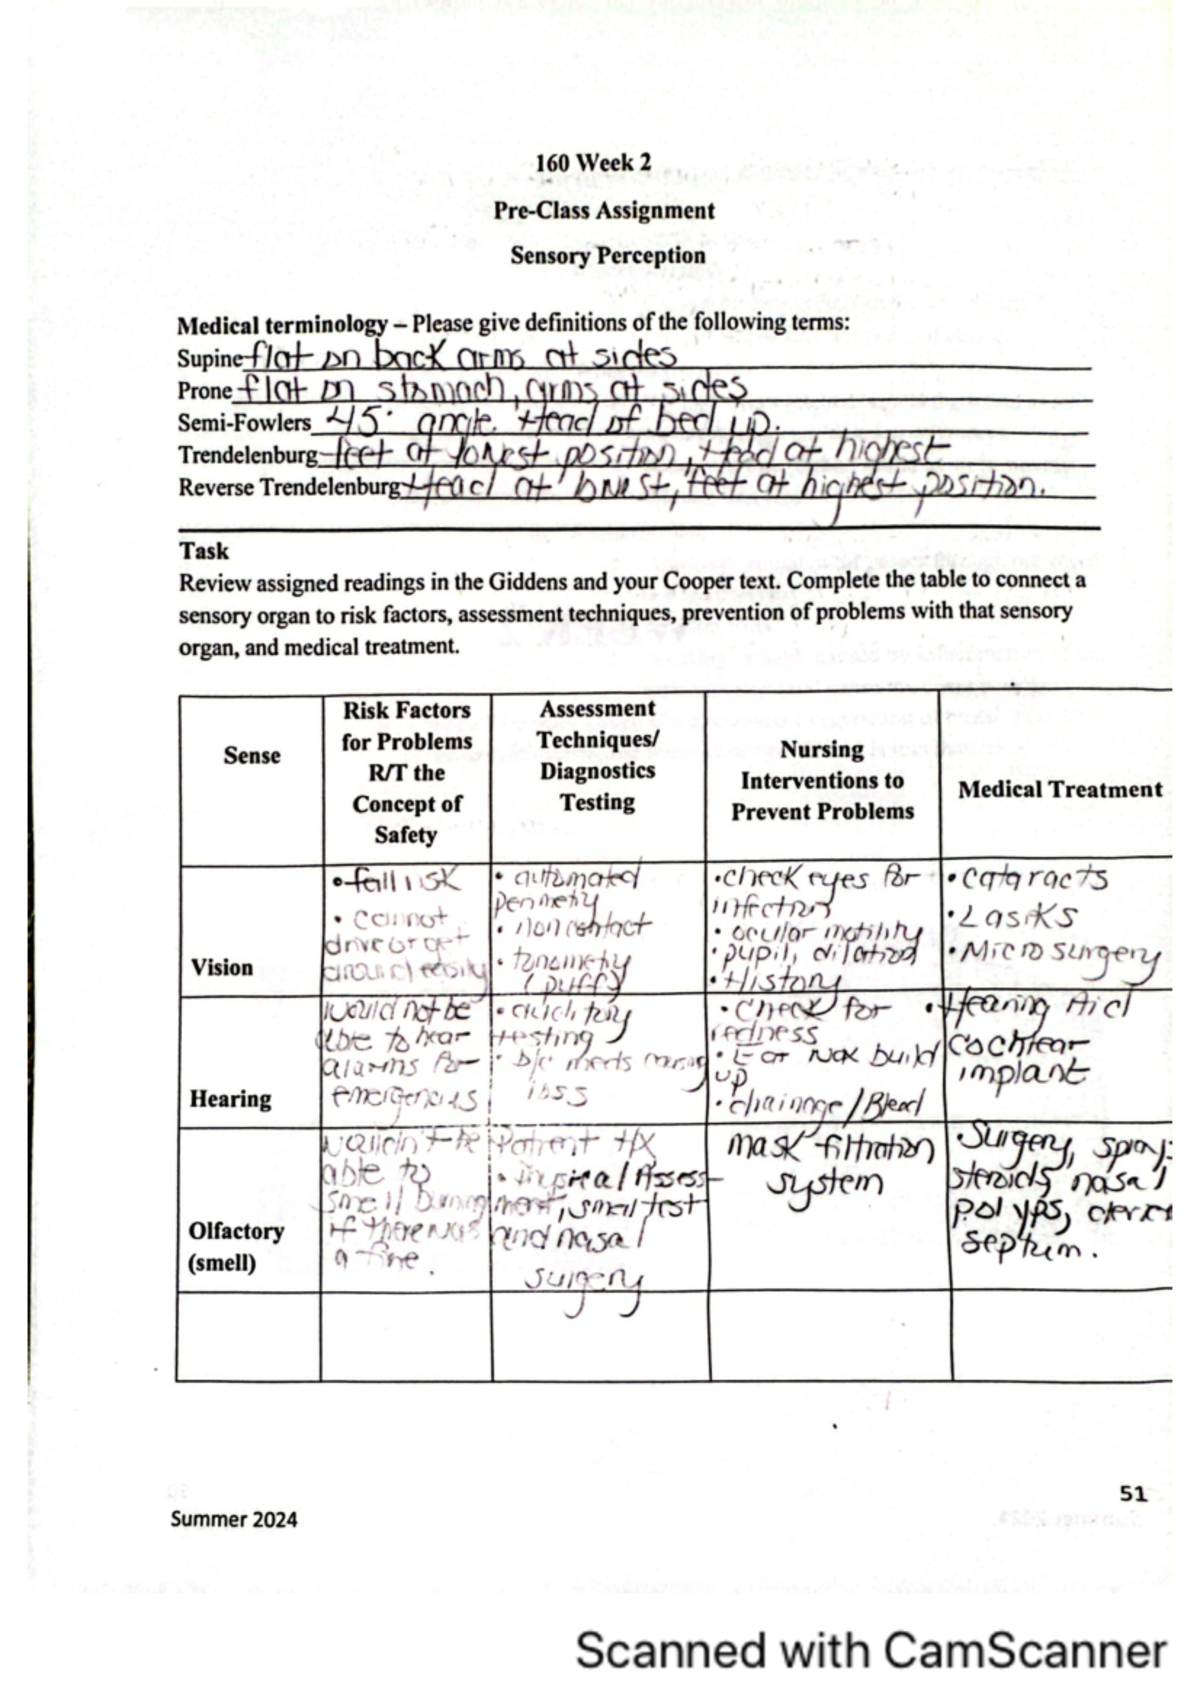 160 Week 2
Pre-Class Assignment
Sensory Perception
Medical terminology – Please give definitions of the following terms:
Supine flat on back arms at sides
Prone flat on stomach, arms at sides
Semi-Fowlers 45° angle. Head of bed up.
Trendelenburg feet at lowest position, Head at highest
Reverse Trendelenburg Head at lowest, feet at highest position.
Task
Review assigned readings in the Giddens and your Cooper text. Complete the table to connect a
sensory organ to risk factors, assessment techniques, prevention of problems with that sensory
organ, and medical treatment.
Sense
Risk Factors
for Problems
R/T the
Concept of
Safety
Assessment
Techniques/
Diagnostics
Testing
Nursing
Interventions to
Prevent Problems
Medical Treatment
Vision
• fall risk
• cannot
drive or get
around easily
• automated
perimetry
• non contact
• tonometry
(puffy
• check eyes for
infection
• ocular motility
• pupil, dilation
• History
• Cataracts
• Lasiks
• Micro surgery
Hearing
would not be
able to hear
alarms for
emergencies
• auditory
testing
• D/c meds causing
loss
• Check for
redness
• Ear wax build
up
• drainage/Bleed
• Hearing Aid
Cochlear
implant
Olfactory
(smell)
wouldn't be
able to
smell burning
if there was
a fire.
Patient HX
• Physical Assess-
ment, smell test
and nasal
surgery
mask filtration
system
• Surgery, spray,
steroids, nasal
polyps,
septum.
51
Summer 2024
Scanned with CamScanner